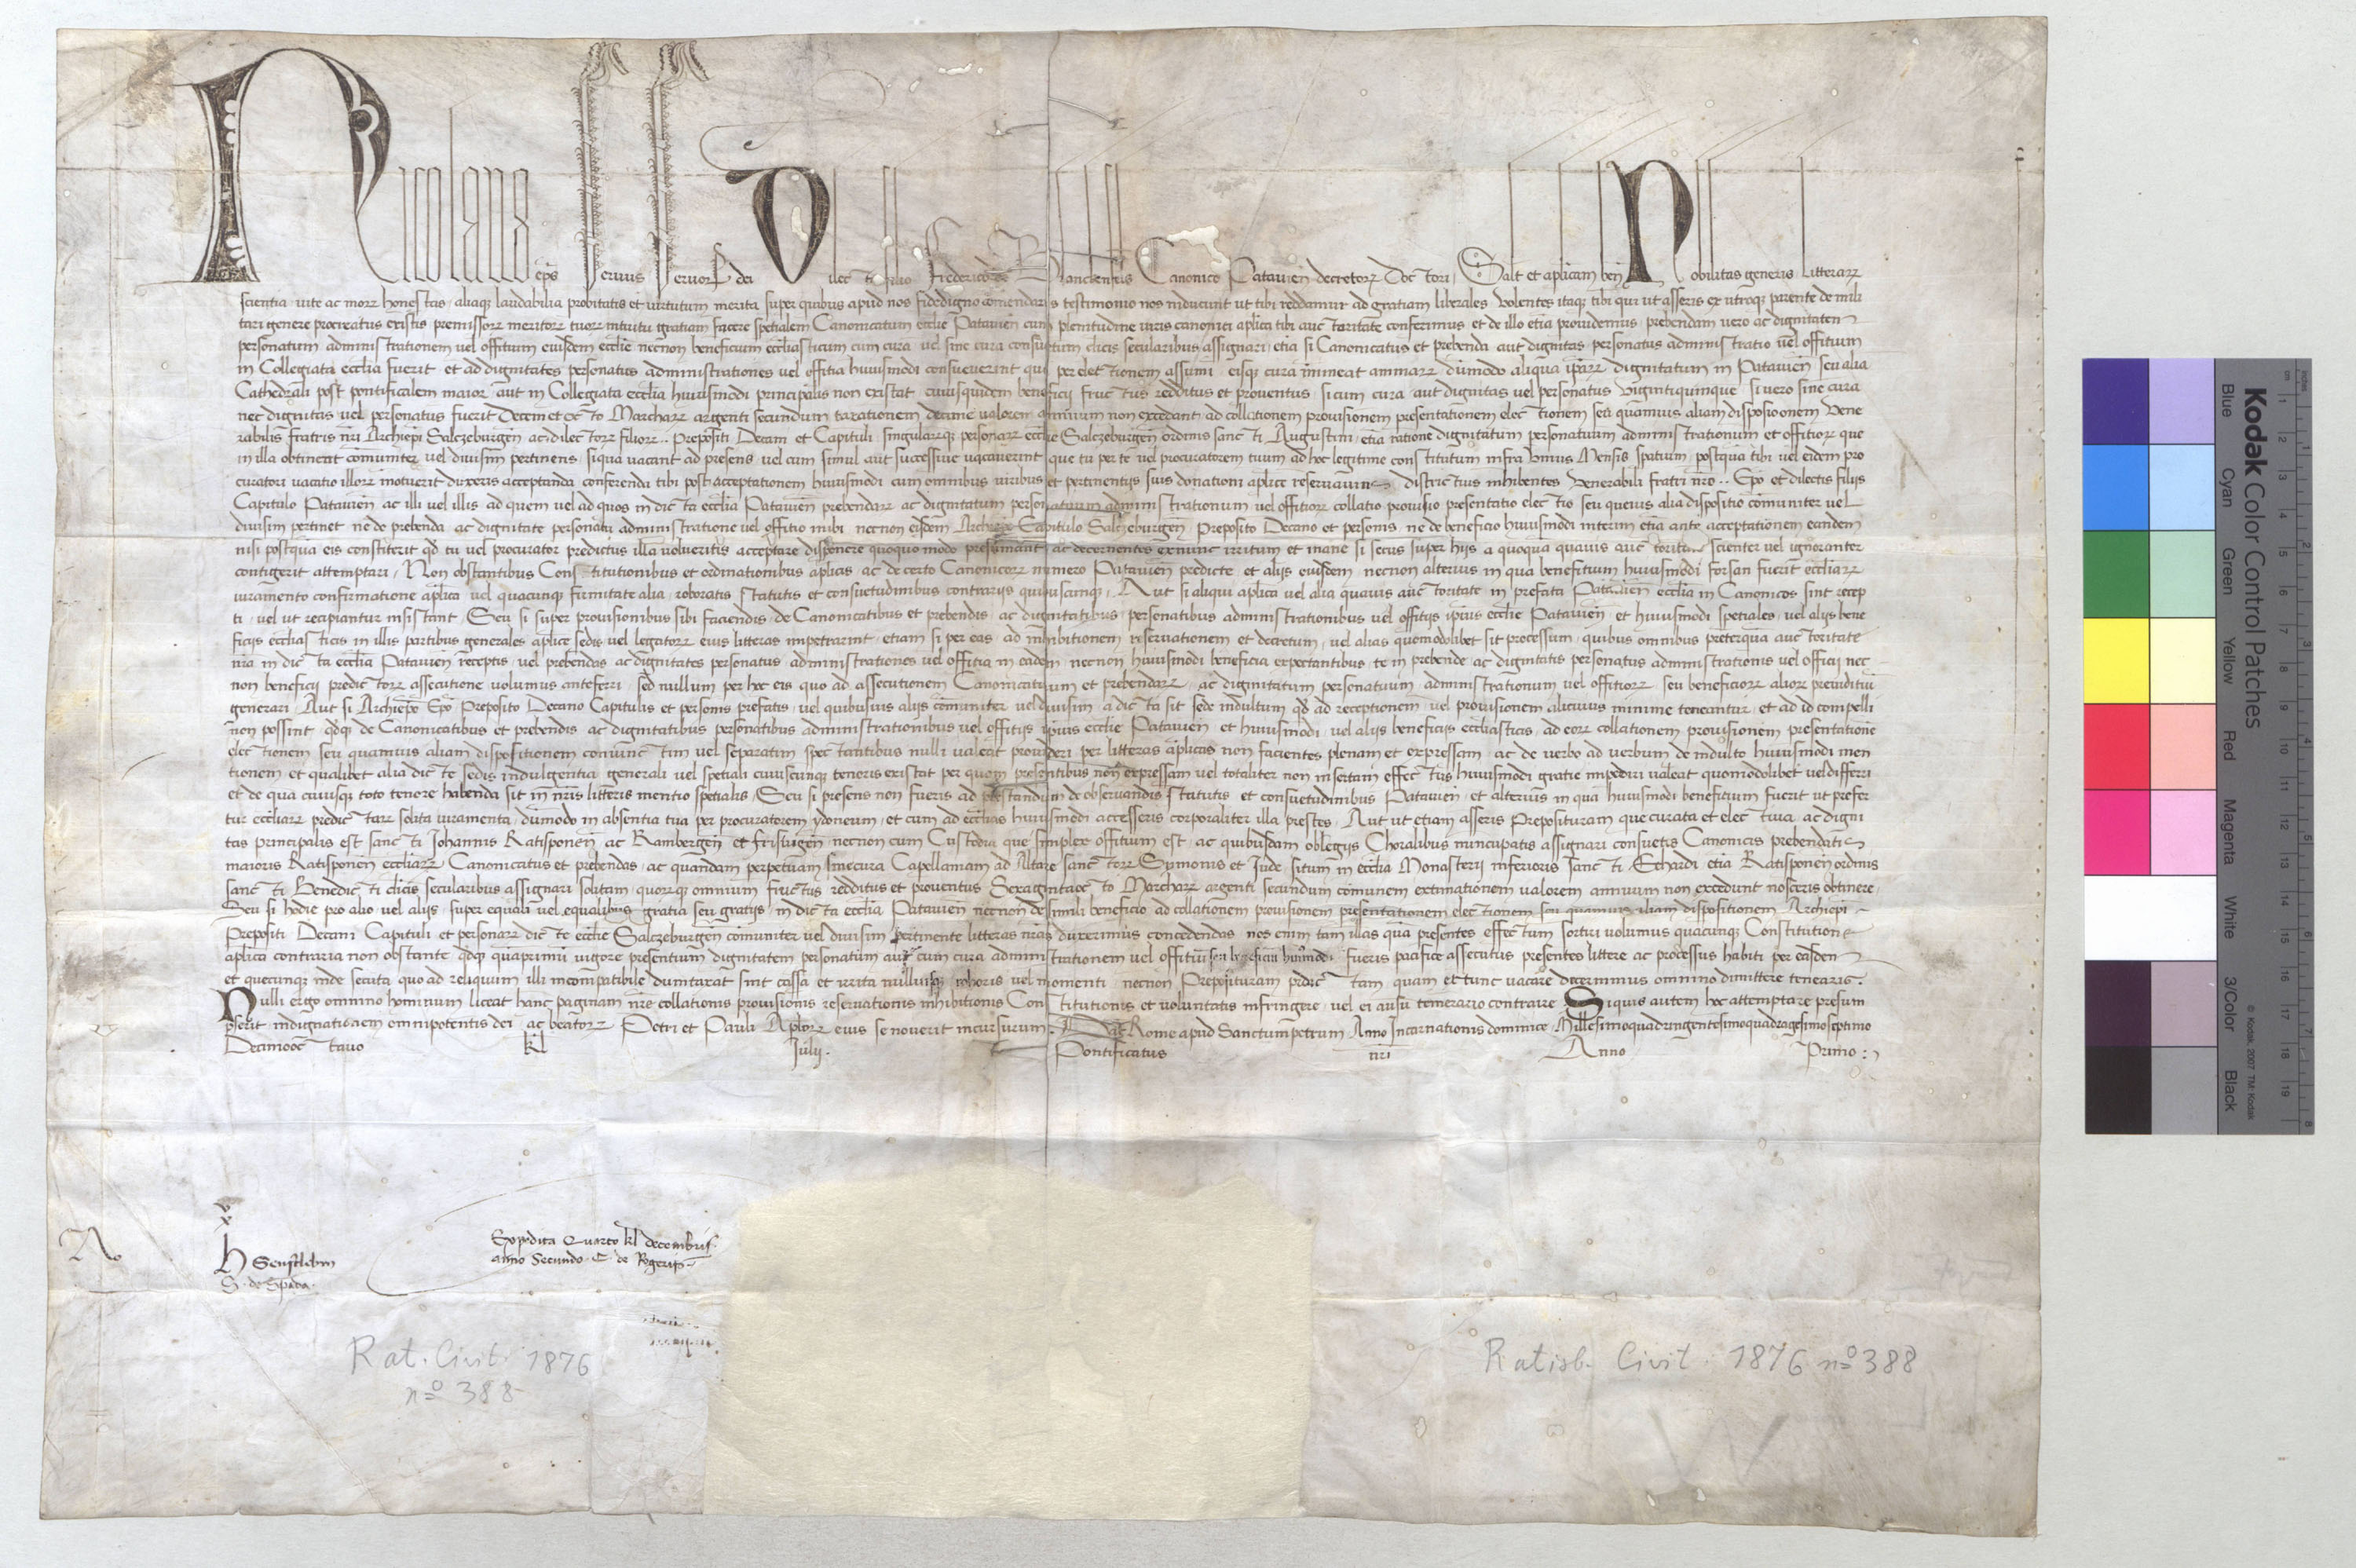 Nicolaus ep̄s seruus seruorꝝ dei Dilecto filio Frederico de Canonico Patauien̄ decretorꝝ Doctori Salt̄ et ap̄licam ben̄ Nobilitas generis litterarꝝ
scientia vite ac morꝝ honestas aliaqꝫ laudabilia probitatis et virtutum merita super quibus apud nos fidedigno comendaris testimonio nos inducunt ut tibi reddamur ad gratiam liberales Volentes itaqꝫ tibi qui ut asseris ex utroqꝫ parente de mili
tari genere procreatus existis premissorꝝ meritorꝝ tuorꝝ intuitu gratiam facere spetialem Canonicatum ecclīe Patauien̄ cum plenitudine iuris canonici aplīca tibi auctoritate conferimus et de illo etiā prouidemus prebendam vero ac dignitatem
personatum administrationem vel offitium eiusdem ecclīe necnon beneficium eccl̄iasticum cum cura vel sine cura consuetum cl̄icis secularibus assignari etiā si Canonicatus et prebenda aut dignitas personatus administratio vel offitium
in Collegiata eccl̄ia fuerit et ad dignitates personatus administrationes vel offitia huiusmodi consueuerint qui per electionem assumi eisqꝫ cura īmineat animarꝝ dūmodo aliqua ip̄arꝝ dignitatum in Patauien̄ seu alia
Cathedrali post pontificalem maior aut in Collegiata eccl̄ia huiusmodi principalis non existat cuiusquidem beneficij fructus redditus et prouentus si cum cura aut dignitas vel personatus vigintiquinque si vero sine cura
nec dignitas vel personatus fuerit Decem et octo Marcharꝝ argenti secundum taxationem decime valorem annuum non excedant ad collationem prouisionem presentationem electionem seu quamuis aliam disposicionem Vene
rabilis fratris nr̄i Archiep̄i Salczeburgen̄ ac dilectorꝝ filiorꝝ .. Prepositi Decani et Capituli singularūqꝫ personarꝝ eccl̄ie Salczeburgen̄ ordinis sancti Augustini etiā ratione dignitatum personatuum administrationum et offitiorꝝ que
in illa obtinent comuniter vel diuisim pertinens siqua vacant ad presens vel cum simul aut successiue vacauerint que tu per te vel procuratorem tuum ad hoc legitime constitutum infra vnius Mensis spatium postquā tibi vel eidem pro
curatori vacatio illorꝝ inotuerit duxeris acceptanda conferenda tibi post acceptationem huiusmodi cum omnibus iuribus et pertinentijs suis donationi aplīce reseruamus districtius inhibentes Venerabili fratri nr̄o .. Ep̄o et dilectis filijs
Capitulo Patauien̄ ac illi vel illis ad quem vel ad quos in dicta eccl̄ia Patauien̄ prebendarꝝ ac dignitatum personatuum administrationum vel offitiorꝝ collatio prouisio presentatio electio seu queuis alia dispositio comuniter vel
diuisim pertinet ne de prebenda ac dignitate personatu administratione vel offitio inibi necnon eisdem Archiep̄o Capitulo Salczeburgen̄ Preposito Decano et personis ne de beneficio huiusmodi interim etiā ante acceptationem eandem
nisi postquā eis constiterit qd̄ tu vel procurator predictus illa volueritis acceptare disponere quoquo modo presumant ac decernentes exnunc irritum et inane si secus super hijs a quoquā quauis auctoritate scienter vel ignoranter
contigerit attemptari Non obstantibus Constitutionibus et ordinationibus aplīcis ac de certo Canonicorꝝ numero Patauien̄ predicte et alijs eiusdem necnon alterius in qua benefitium huiusmodi forsan fuerit eccl̄iarꝝ
iuramento confirmatione aplīca vel quacunqꝫ firmitate alia roboratis statutis et consuetudinibus contrarijs quibuscunqꝫ Aut si aliqui aplīca vel alia quauis auctoritate in prefata Patauien̄ eccl̄ia in Canonicos sint recep
ti vel ut recipiantur insistant Seu si super prouisionibus sibi faciendis de Canonicatibus et prebendis ac dignitatibus personatibus administrationibus vel offitijs ip̄ius ecclīe Patauien̄ et huiusmodi spetiales vel alijs bene
ficijs eccl̄iasticis in illis partibus generales aplīce sedis vel legatorꝝ eius litteras impetrarint etiam si per eas ad inhibitionem reseruationem et decretum vel alias quomodolibet sit processum quibus omnibus preterquā auctoritate
nr̄a in dicta eccl̄ia Patauien̄ receptis vel prebendas ac dignitates personatus administrationes vel offitia in eadem necnon huiusmodi beneficia expectantibus te in prebende ac dignitatis personatus administrationis vel officij nec
non beneficij predictorꝝ assecutione volumus anteferri sed nullum per hoc eis quo ad assecutionem Canonicatuum et prebendarꝝ ac dignitatum personatuum administrationum vel offitiorꝝ seu beneficiorꝝ aliorꝝ preiuditiū
generari Aut si Archiep̄o Ep̄o Preposito Decano Capitulis et personis prefatis vel quibusuis alijs comuniter vel diuisim a dicta sit sede indultum qd̄ ad receptionem vel prouisionem alicuius minime teneantur et ad id compelli
non possint qd̄qꝫ de Canonicatibus et prebendis ac dignitatibus personatibus administrationibus vel offitijs ip̄ius ecclīe Patauien̄ et huiusmodi vel alijs beneficijs eccl̄iasticis ad eorꝝ collationem prouisionem presentationē
electionem seu quamuis aliam dispositionem coniunctim vel separatim spectantibus nulli valeat prouideri per litteras aplīcas non facientes plenam et expressam ac de verbo ad verbum de indulto huiusmodi men
tionem et qualibet alia dicte sedis indulgentia generali vel spetiali cuiuscunqꝫ tenoris existat per quam presentibus non expressam vel totaliter non insertam effectus huiusmodi gratie impediri valeat quomodolibet vel differri
et de qua cuiusqꝫ toto tenore habenda sit in nr̄is litteris mentio spetialis Seu si presens non fueris ad prestandum de obseruandis statutis et consuetudinibus Patauien̄ et alterius in qua huiusmodi benefitium fuerit ut prefer
tur eccl̄iarꝝ predictarꝝ solita iuramenta dūmodo in absentia tua per procuratorem ydoneum et cum ad eccl̄ias huiusmodi accesseris corporaliter illa prestes Aut ut etiam asseris Preposituram que curata et electiua ac digni
tas principalis est sancti Johannis Ratisponen̄ ac Bambergen̄ et Frisingen̄ necnon cum Custodia que simplex offitium est ac quibusdam oblegijs Choralibus nuncupatis assignari consuetis Canonicis prebendatis
maioris Ratisponen̄ eccl̄iarꝝ Canonicatus et prebendas ac quandam perpetuam sinecura Capellaniam ad Altare sanctorꝝ Symonis et Jude situm in eccl̄ia Monasterij inferioris sancti Erhardi etiā Ratisponen̄ ordinis
sancti Benedicti cl̄icis secularibus assignari solitam quorꝝqꝫ omnium fructus redditus et prouentus Sexagintaocto Marcharꝝ argenti secundum comunem extimationem valorem annuum non excedunt nosceris obtinere
Seu si hodie pro alio vel alijs super equali vel equalibus gratia seu gratijs in dicta eccl̄ia Patauien̄ necnon de simili beneficio ad collationem prouisionem presentationem electionem seu quamuis aliam dispositionem Archiep̄i
Prepositi Decani Capituli et personarꝝ dicte ecclīe Salczeburgen̄ comuniter vel diuisim pertinente litteras nr̄as duxerimus concedendas nos enim tam illas quā presentes effectum sortiri volumus quacunqꝫ Constitutione
aplīca contraria non obstante qd̄qꝫ quāprimū vigore presentium dignitatem personatum aut cum cura administrationem vel offitiū seu beneficium huiusmodi fueris pacifice assecutus presentes littere ac processus habiti per easdem
et quecunqꝫ inde secuta quo ad reliquum illi incompatibile dumtaxat sint cassa et irrita nulliusqꝫ roboris vel momenti necnon Preposituram predictam quam ex tunc vacare decernimus omnino dimittere tenearis.
Nulli ergo omnino hominum liceat hanc paginam nr̄e collationis prouisionis reseruationis inhibitionis Constitutionis et voluntatis infringere vel ei ausu temerario contraire. Siquis autem hoc attemptare presum
pserit indignationem omnipotentis dei ac beatorꝝ Petri et Pauli Ap̄lorꝝ eius se nouerit incursurum. Dat̄ Rome apud Sanctumpetrum Anno Incarnationis dominice Millesimoquadringentesimoquadragesimoseptimo
Decimooctauo kl̄ Iulij. Pontificatus nr̄i Anno Primo :
v
x
H Senftleben
S. de Spada.
Expedita Quarto kl̄ decembris.
anno Secundo. C. de Rogerijs
Rat. Civit. 1876
nº 388
Ratisb. Civit. 1876 nº 388
Kodak Color Control Patches
Blue Cyan Green Yellow Red Magenta White 3/Color Black
© Kodak, 2007 TM: Kodak
cm 1 2 3 4 5 6 7 8 9 10 11 12 13 14 15 16 17 18 19
inches 1 2 3 4 5 6 7 8